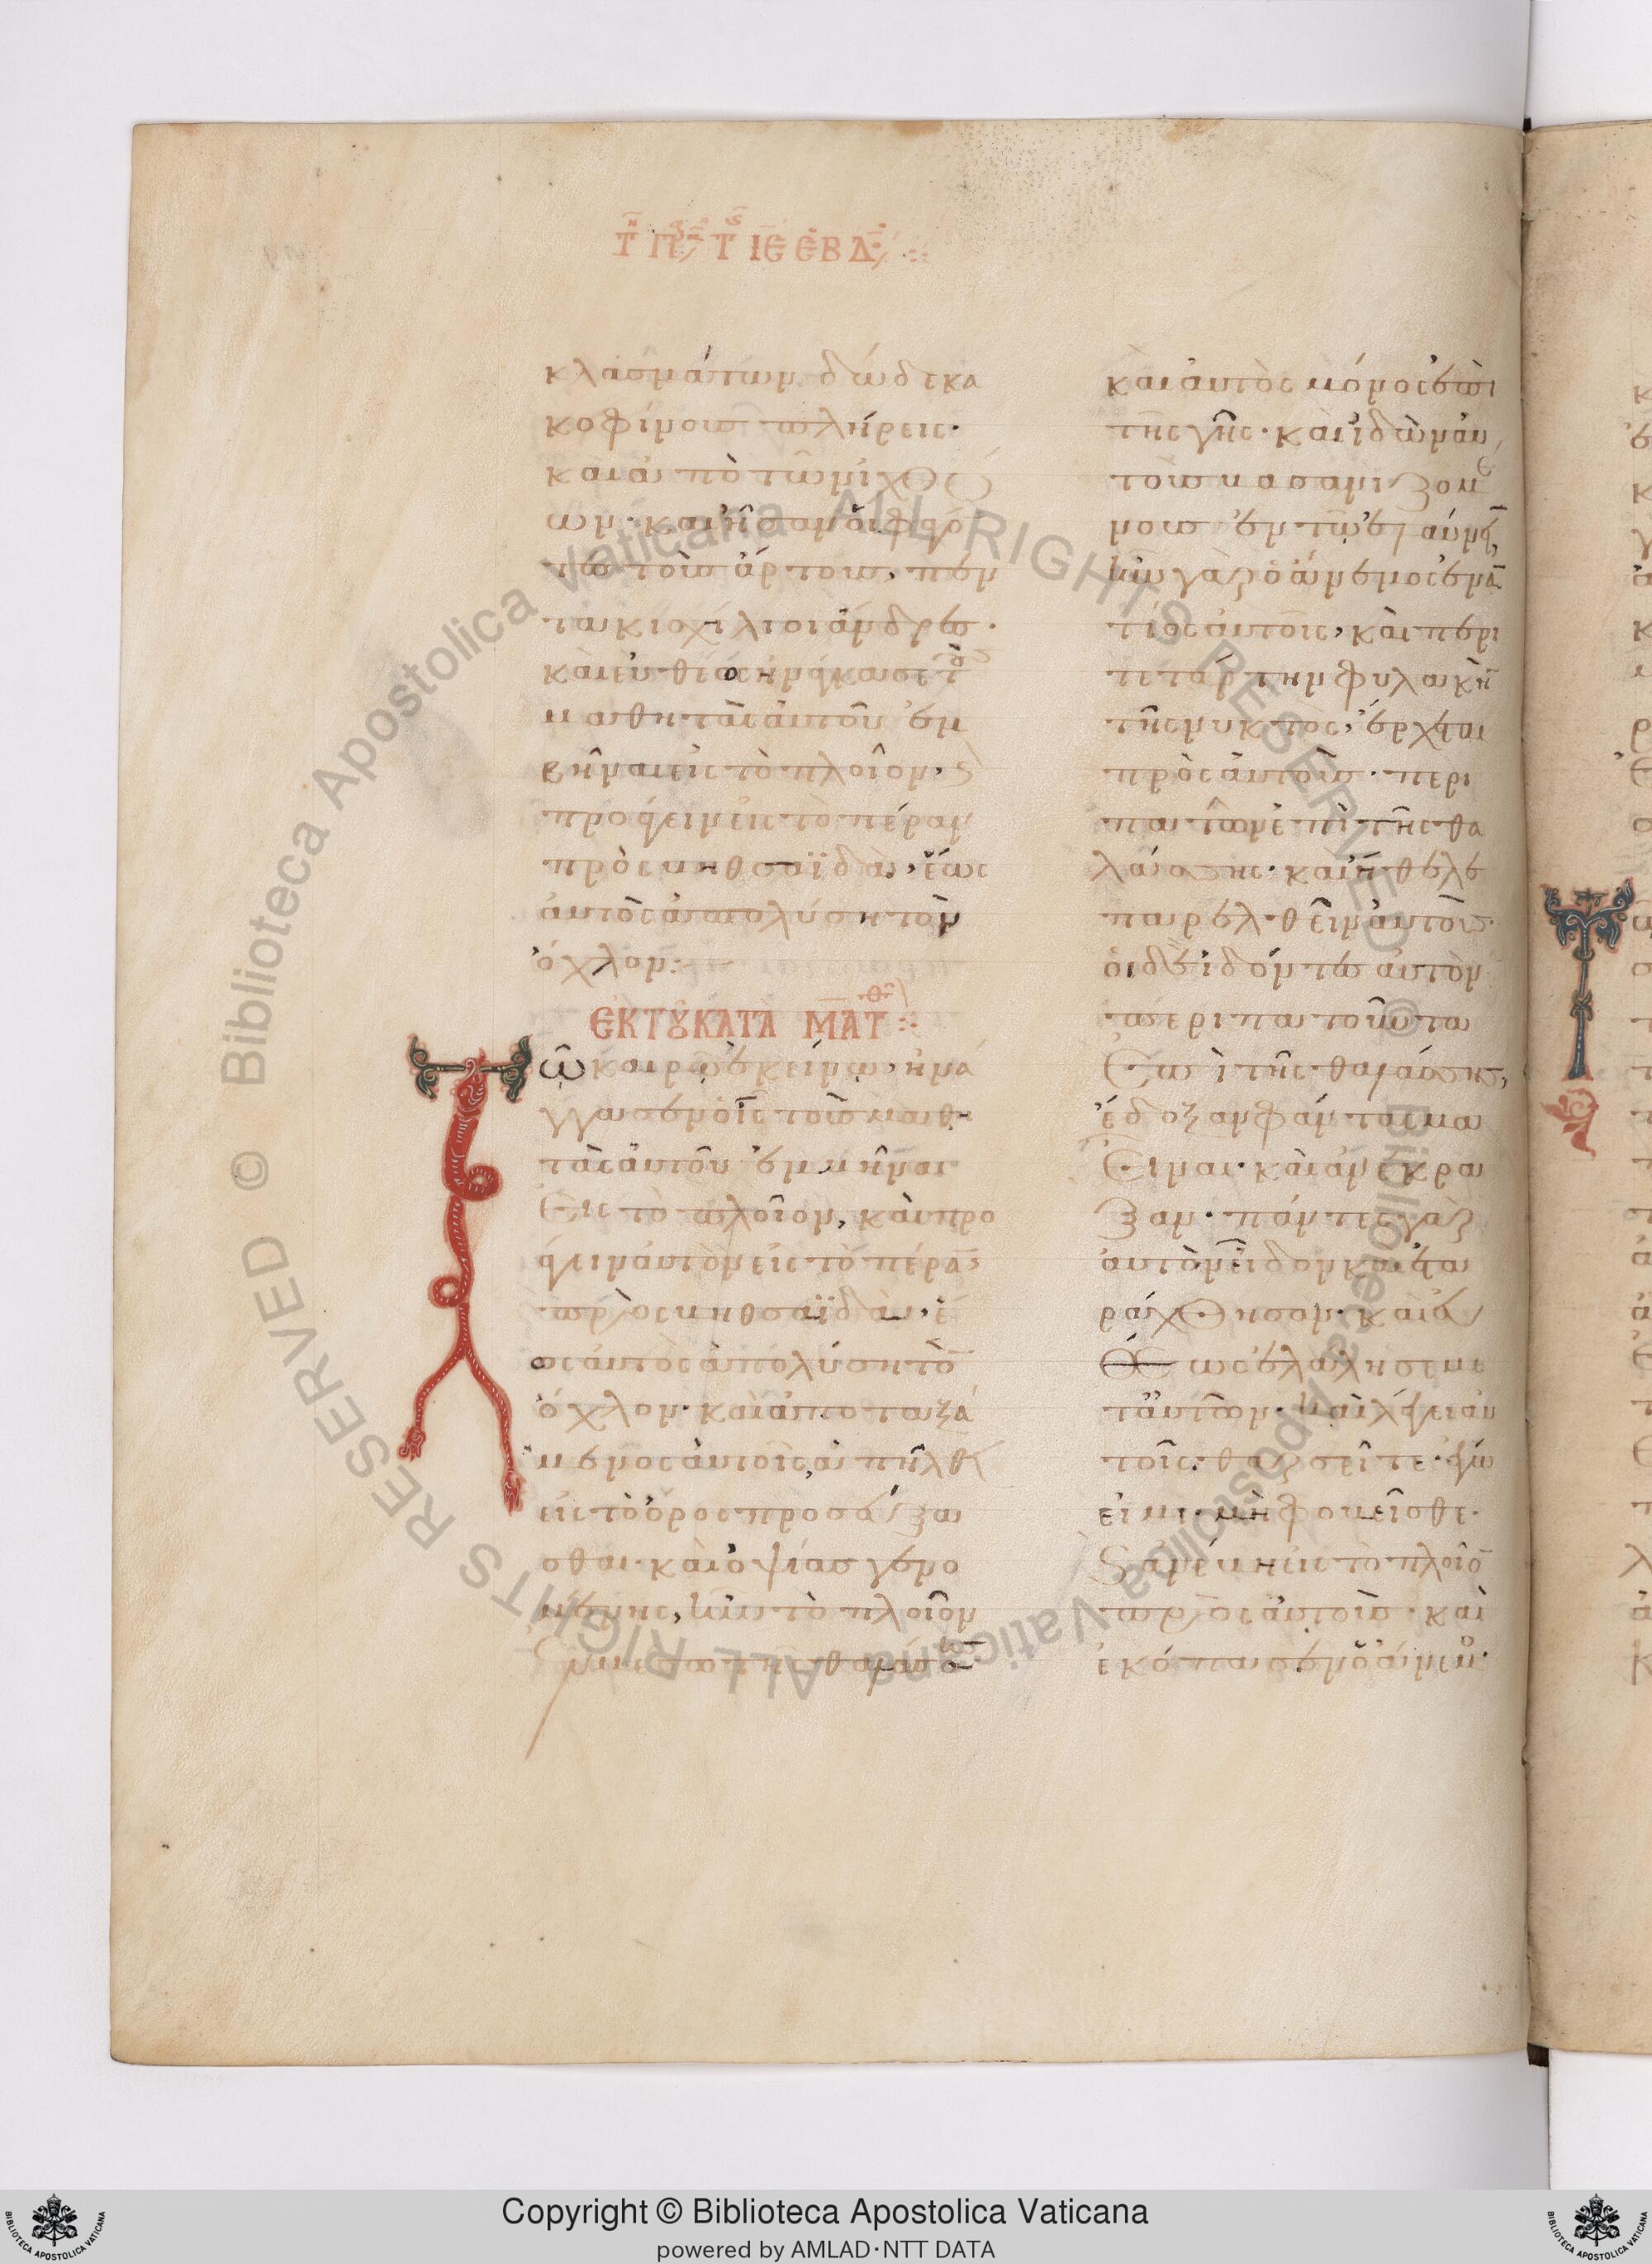 κλασμάτων δώδεκα
κοφίνους πλήρεις·
καὶ ἀπὸ τῶν ἰχθύ
ων· καὶ ἦσαν οἱ φαγό
τες τοὺς ἄρτους, πεν
τακισχίλιοι ἄνδρες·
καὶ εὐθέως ἠνάγκασε τοὺς
μαθητὰς αὐτοῦ ἐμ
βῆναι εἰς τὸ πλοῖον,
προάγειν εἰς τὸ πέραν
πρὸς βηθσαϊδὰν, ἕως
αὐτὸς ἀπολύση τὸν
ὄχλον:
ΕΚ ΤΟΥ ΚΑΤΑ ΜΑΤΘ
Τῶ καιρῶ ἐκείνω, ἠνά
γκασεν ὁ ις τοὺς μαθη
τὰς αὐτοῦ ἐμβῆναι
εἰς τὸ πλοῖον, καὶ προ
άγειν αὐτὸν εἰς τὸ πέραν
πρὸς βηθσαϊδὰν, ἕ
ως αὐτὸς ἀπολύση τὸν
ὄχλον· καὶ ἀποταξά
μενος αὐτοῖς, ἀπῆλθεν
εἰς τὸ ὄρος προσεύξα
σθαι· καὶ ὀψίας γενο
μένης, ἦν τὸ πλοῖον
ἐν μέσω τῆς θαλάσσης
καὶ αὐτὸς μόνος ἐπὶ
τῆς γῆς· καὶ ἰδὼν αὐ
τοὺς βασανιζομέ
νους ἐν τῶ ἐλαύνειν,
ἦν γὰρ ὁ ἄνεμος ἐναν
τίος αὐτοῖς, καὶ περὶ
τετάρτην φυλακὴν
τῆς νυκτὸς, ἔρχεται
πρὸς αὐτοὺς· περι
πατῶν ἐπὶ τῆς θα
λάσσης· καὶ ἤθελε
παρελθεῖν αὐτοὺς·
οἱ δὲ ἰδόντες αὐτὸν
περιπατοῦντα
ἐπὶ τῆς θαλάσσης,
ἔδοξαν φάντασμα
εἶναι· καὶ ἀνέκρα
ξαν· πάντες γὰρ
αὐτὸν εἶδον καὶ ἐτα
ράχθησαν· καὶ εὐ
θέως ἐλάλησε με
τ᾽ αὐτῶν· καὶ λέγει αὐ
τοῖς· θαρσεῖτε· ἐγώ
εἰμι· μὴ φοβεῖσθε·
καὶ ἀνέβη εἰς τὸ πλοῖον
πρὸς αὐτοὺς· καὶ
ἐκόπασεν ὁ ἄνεμος·